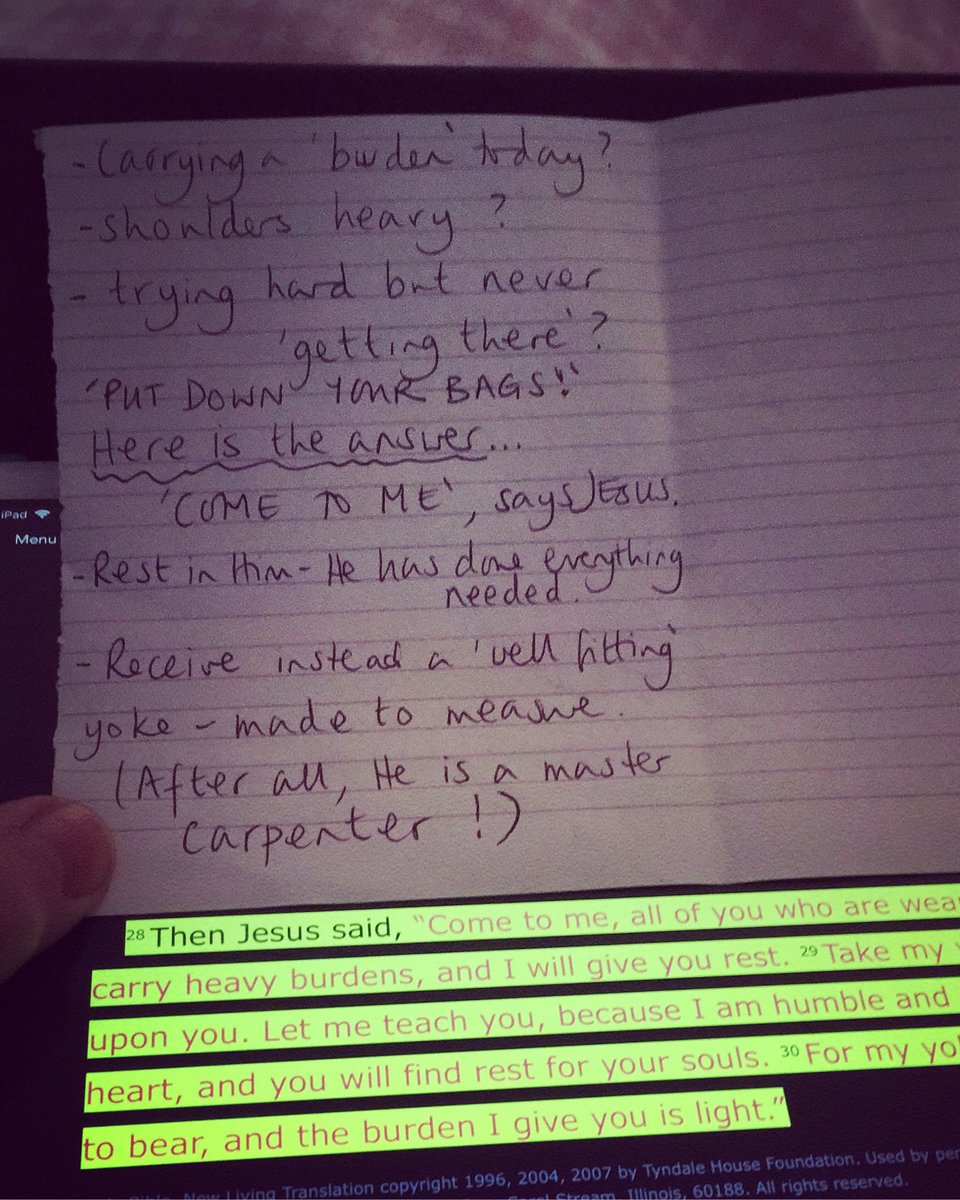 - Carrying a 'burden' today?
- shoulders heavy ?
- trying hard but never
'getting there'?
'PUT DOWN YOUR BAGS!'
Here is the answer...
'COME TO ME', says JESUS.
- Rest in Him - He has done everything
needed.
- Receive instead a 'well fitting'
yoke - made to measure.
(After all, He is a master
carpenter !)
iPad
Menu
28 Then Jesus said, “Come to me, all of you who are
carry heavy burdens, and I will give you rest. 29 Take my
upon you. Let me teach you, because I am humble and
heart, and you will find rest for your souls. 30 For my
to bear, and the burden I give you is light.”
New Living Translation copyright 1996, 2004, 2007 by Tyndale House Foundation. Used by
Stream, Illinois, 60188. All rights reserved.